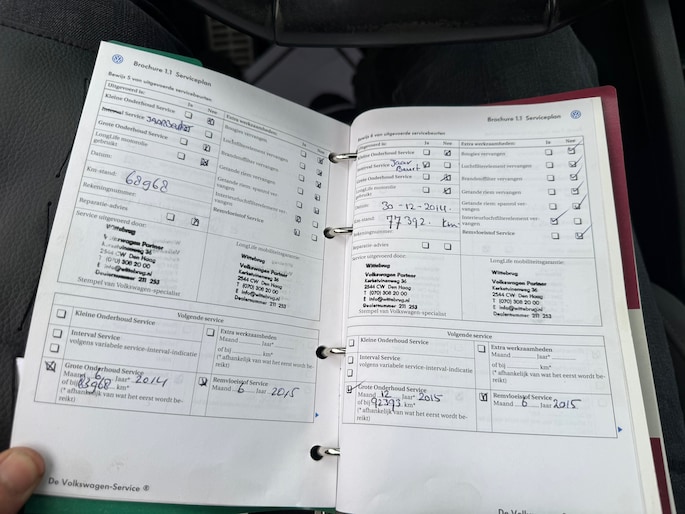 Brochure 1.1 Serviceplan
Bewijs 5 van uitgevoerde servicebeurten
Uitgevoerd is:
Ja Nee
Kleine Onderhoud Service
Service JAARBEURT
Grote Onderhoud Service
LongLife motorolie
gebruikt
Datum:
Km-stand: 68968
Rekeningnummer:
Reparatie-advies
Extra werkzaamheden:
Ja Nee
Bougies vervangen
Luchtfilterelement vervangen
Brandstoffilter vervangen
Getande riem vervangen
Getande riem spanrol ver-
vangen
Interieurluchtfilterelement ver-
vangen
Remvloeistof Service
Service uitgevoerd door:
Wittebrug
Volkswagen Partner
Kerketuinenweg 36
2544 CW Den Haag
T (070) 308 20 00
E info@wittebrug.nl
Dealernummer 211 253
Stempel van Volkswagen-specialist
LongLife mobiliteitsgarantie:
Wittebrug
Volkswagen Partner
Kerketuinenweg 36
2544 CW Den Haag
T (070) 308 20 00
E info@wittebrug.nl
Dealernummer 211 253
Volgende service
Kleine Onderhoud Service
Interval Service
volgens variabele service-interval-indicatie
Grote Onderhoud Service
Maand 6 Jaar* 2014
of bij 83968 km*
(* afhankelijk van wat het eerst wordt be-
reikt)
Extra werkzaamheden
Maand Jaar*
of bij km*
(* afhankelijk van wat het eerst wordt be-
reikt)
Remvloeistof Service
Maand 6 Jaar 2015
De Volkswagen-Service ®
Brochure 1.1 Serviceplan
Bewijs 6 van uitgevoerde servicebeurten
Uitgevoerd is:
Ja Nee
Kleine Onderhoud Service
Service Jaar
Beurt
Grote Onderhoud Service
LongLife motorolie
gebruikt
Datum: 30-12-2014.
Km-stand: 77392. km
Rekeningnummer:
Reparatie-advies
Extra werkzaamheden:
Ja Nee
Bougies vervangen
Luchtfilterelement vervangen
Brandstoffilter vervangen
Getande riem vervangen
Getande riem spanrol ver-
vangen
Interieurluchtfilterelement ver-
vangen
Remvloeistof Service
Service uitgevoerd door:
Wittebrug
Volkswagen Partner
Kerketuinenweg 36
2544 CW Den Haag
T (070) 308 20 00
E info@wittebrug.nl
Dealernummer 211 253
Stempel van Volkswagen-specialist
LongLife mobiliteitsgarantie:
Wittebrug
Volkswagen Partner
Kerketuinenweg 36
2544 CW Den Haag
T (070) 308 20 00
E info@wittebrug.nl
Dealernummer 211 253
Volgende service
Kleine Onderhoud Service
Interval Service
volgens variabele service-interval-indicatie
Grote Onderhoud Service
Maand 12 Jaar* 2015
of bij 92393 km*
(* afhankelijk van wat het eerst wordt be-
reikt)
Extra werkzaamheden
Maand Jaar*
of bij km*
(* afhankelijk van wat het eerst wordt be-
reikt)
Remvloeistof Service
Maand 6 Jaar 2015
De Volkswagen-Service ®